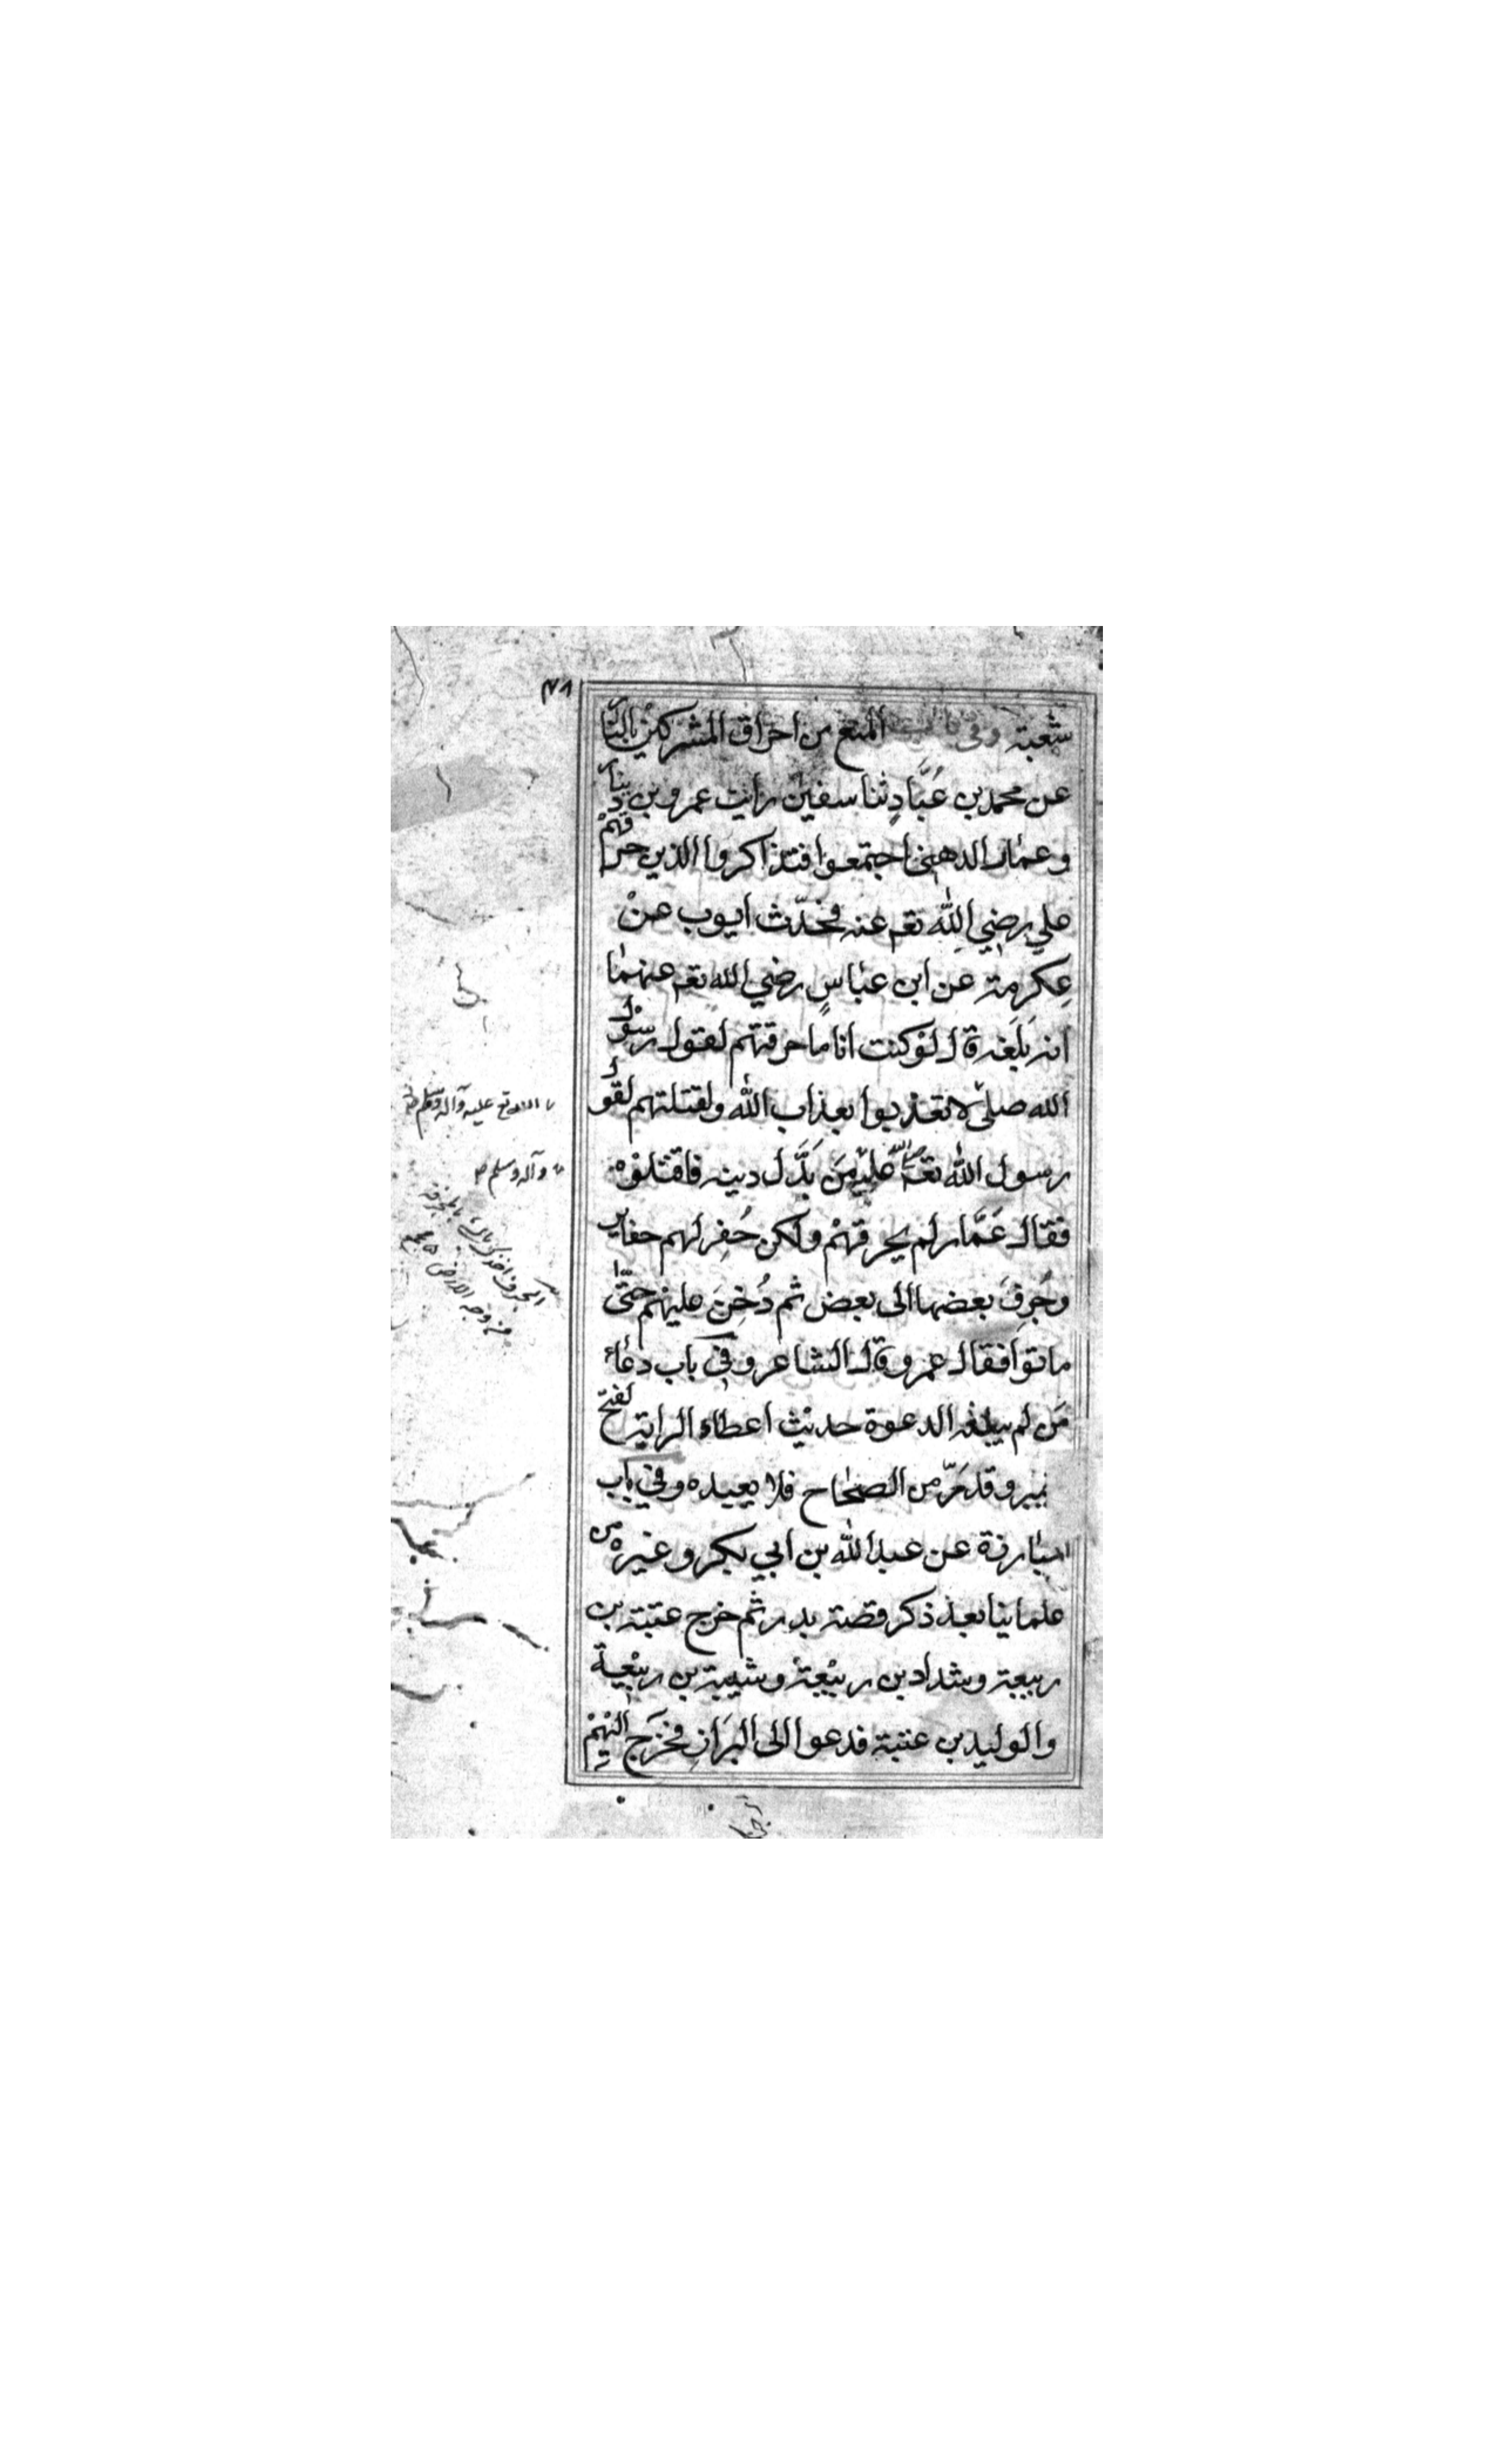 ٤٨
شعبة وفى باب المنع من احراق المشركين بالنار
عن محمد بن عُبَّادٍ ثنا سفين رايت عمرو بن دينار
وعمار الدهنى اجتمعوا فتذاكروا الذين حرا قهم
علي رضي الله تعـ عنه فحدّث ايوب عن
عِكرِمة عن ابن عباسٍ رضي الله تعـ عنهما
انه بلغه قال لو كنت انا ما حرقتهم لقول رسول
الله صلى لا تعذبوا بعذاب الله ولقتلتهم لقول
رسول الله تعـ صلى عليه مَن بَدَّل دينه فاقتلوه
فقال عَمَّار لم يحرقهم ولكن حُفِر لهم حفاير
وحُرِفَ بعضها الى بعض ثم دُخِنَ عليهم حتّى
ماتوا فقال عمرو قال الشاعر وفي باب دعاء
مَن لم يبلغه الدعوة حديث اعطاء الراية لفتح
يبر وقد مَرّ من الصحاح فلا يعيده وفي باب
المبارزة عن عبد الله بن ابي بكر وغيره من
علماينا بعد ذكر قصة بدر ثم خرج عتبة بن
ربيعة وشداد بن ربيعة وشيبة بن ربيعة
والوليد بن عتبة فدعوا الى البراز فخرج اليهم
الله تع عليه وآله وسلم
وآله وسلم
من وجه الارض